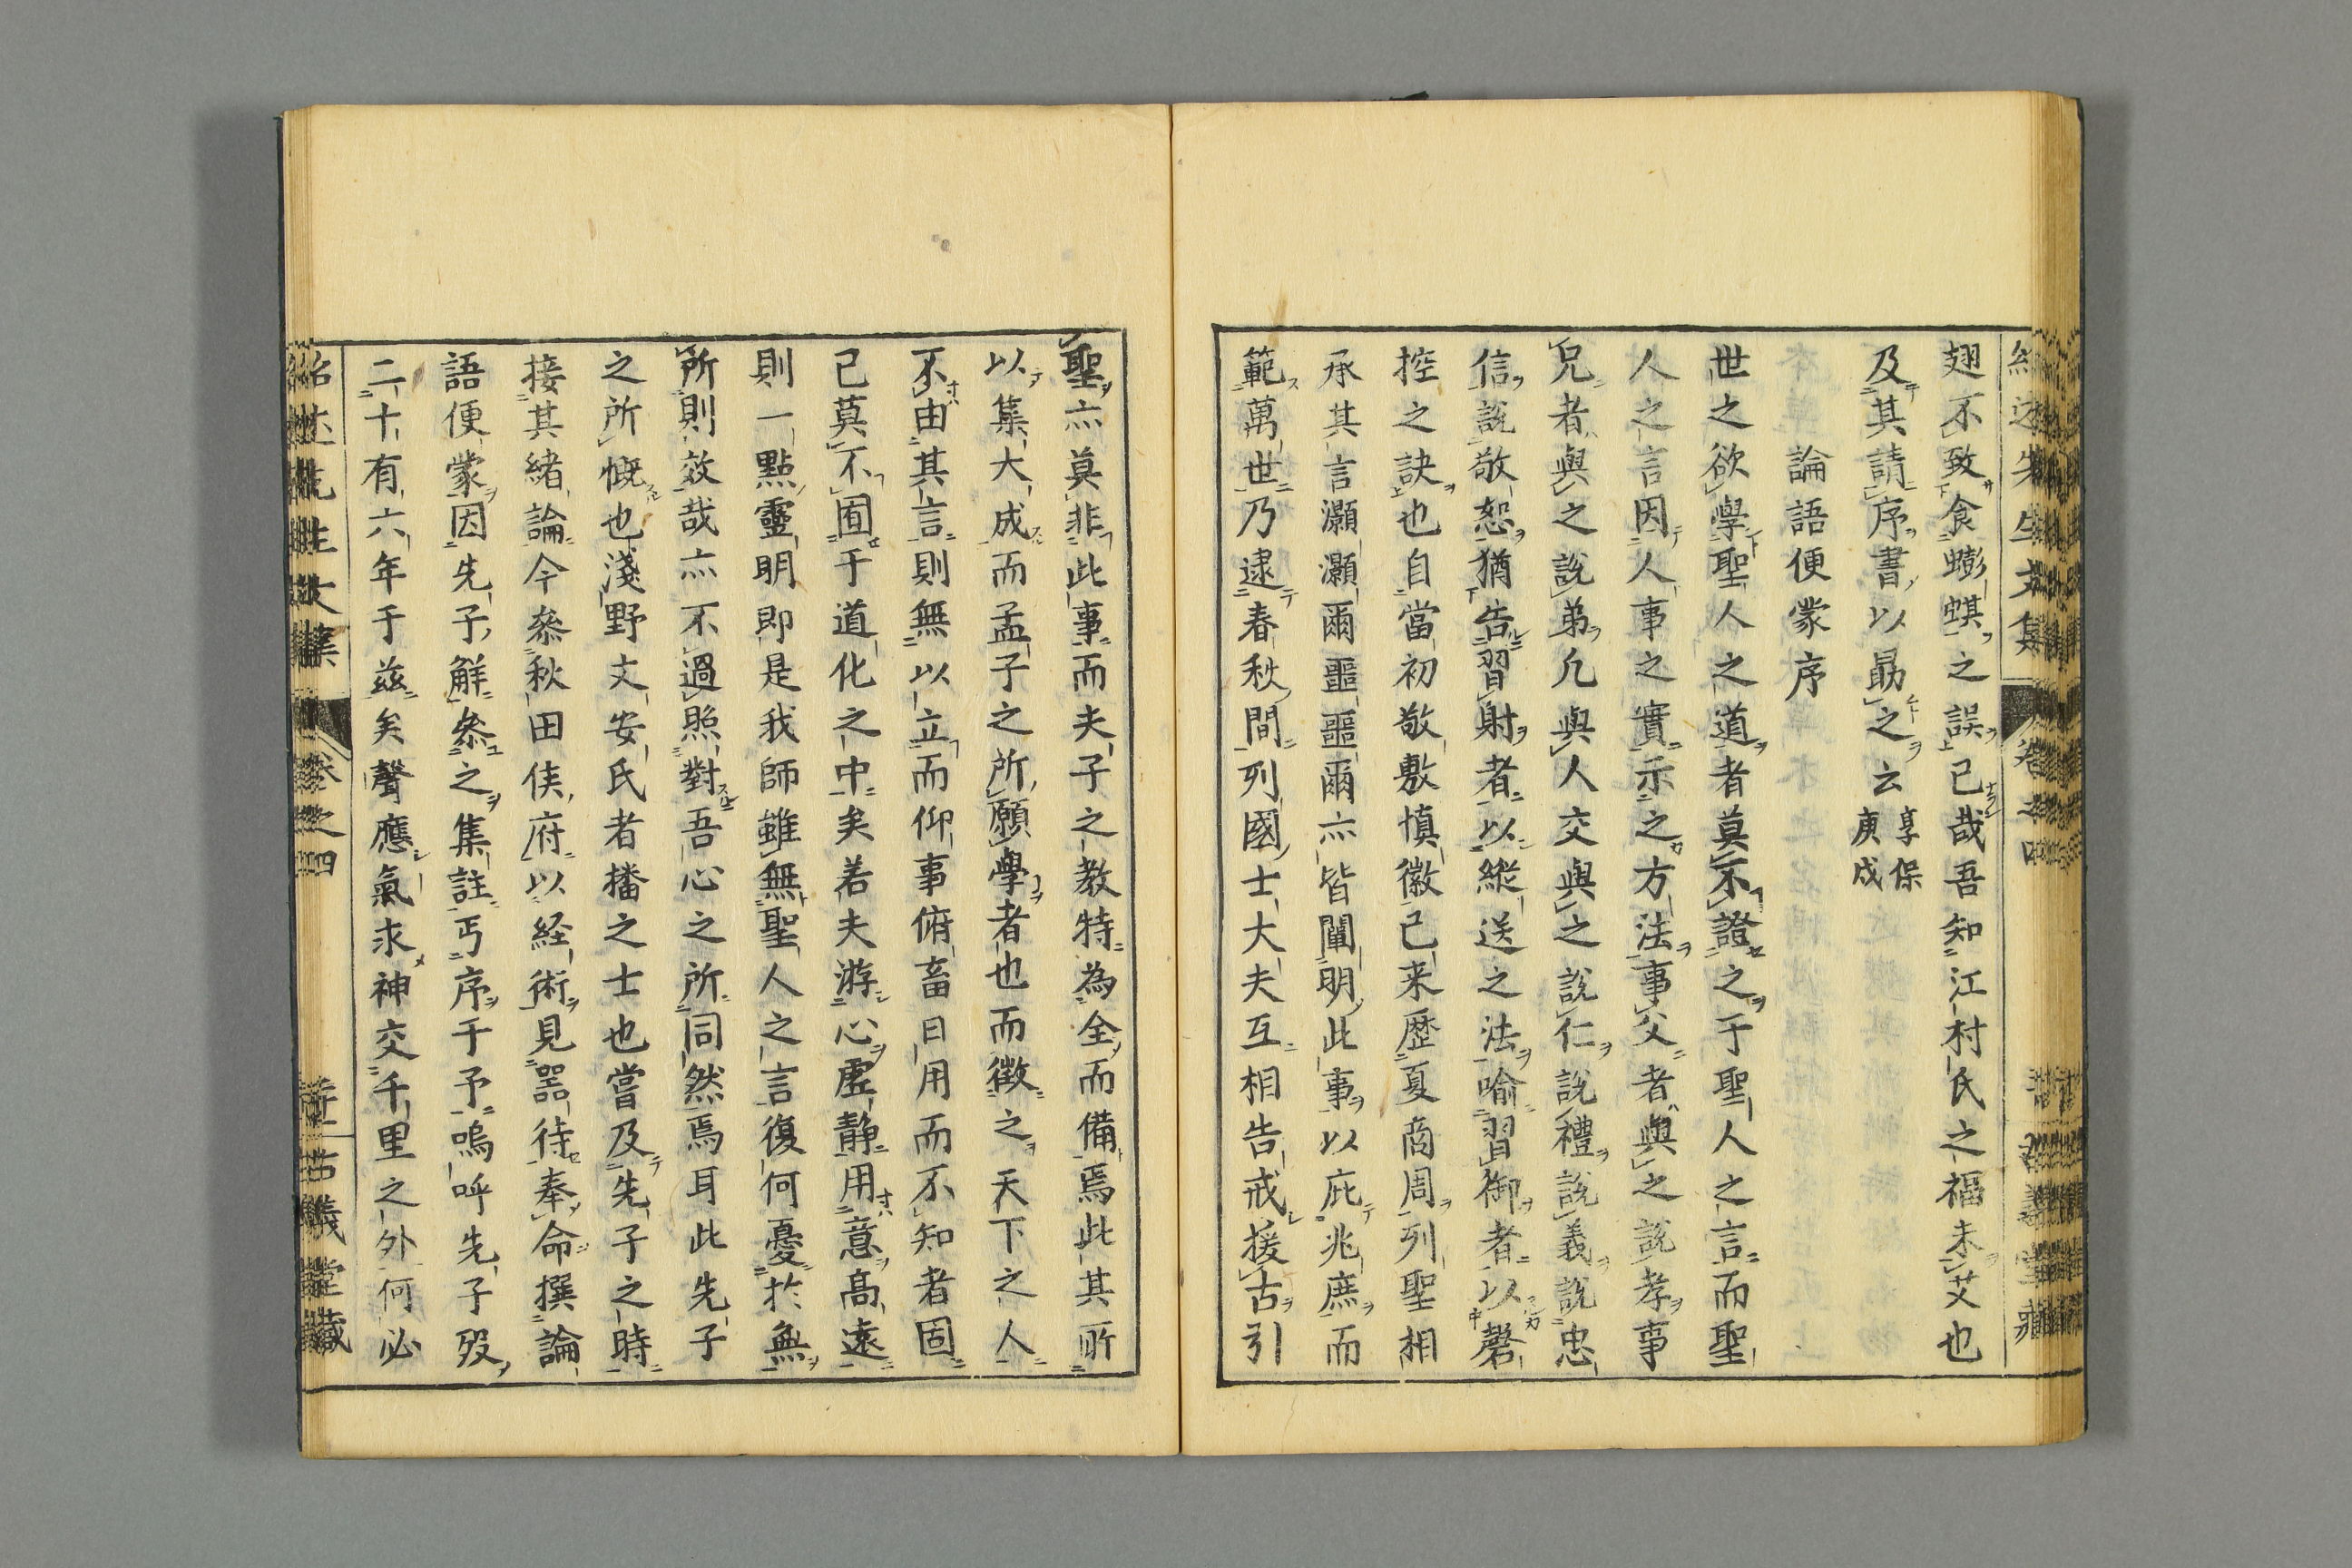 翅不致食蟛蜞之誤已哉吾知江村氏之福未艾也
及其請序書以勗之云享保庚戌
論語便蒙序
世之欲學聖人之道者莫不證之于聖人之言而聖
人之言因人事之實示之方法事父者與之說孝事
兄者與之說弟凢與人交與之說仁說禮說義說忠
信說敬恕猶告習射者以縱送之法喻習御者以磬
控之訣也自當初敬敷慎徽已来歷夏商周列聖相
承其言灝灝爾噩噩爾亦皆闡明此事以庇兆庶而
範萬世乃逮春秋間列國士大夫互相告戒援古引
聖亦莫非此事而夫子之教特為全而備焉此其所
以集大成而孟子之所願學者也而徴之天下之人
不由其言則無以立而仰事俯畜日用而不知者固
已莫不囿于道化之中矣若夫游心虛靜用意高遠
則一點靈明即是我師雖無聖人之言復何憂於無
所則效哉亦不過照對吾心之所同然焉耳此先子
之所慨也淺野文安氏者播之士也嘗及先子之時
接其緒論今叅秋田侯府以経術見器待奉命撰論
語便蒙因先子解叅之集註丐序于予嗚呼先子歿
二十有六年于茲矣聲應氣求神交千里之外何必
紹述先生文集 卷之四 古義堂藏